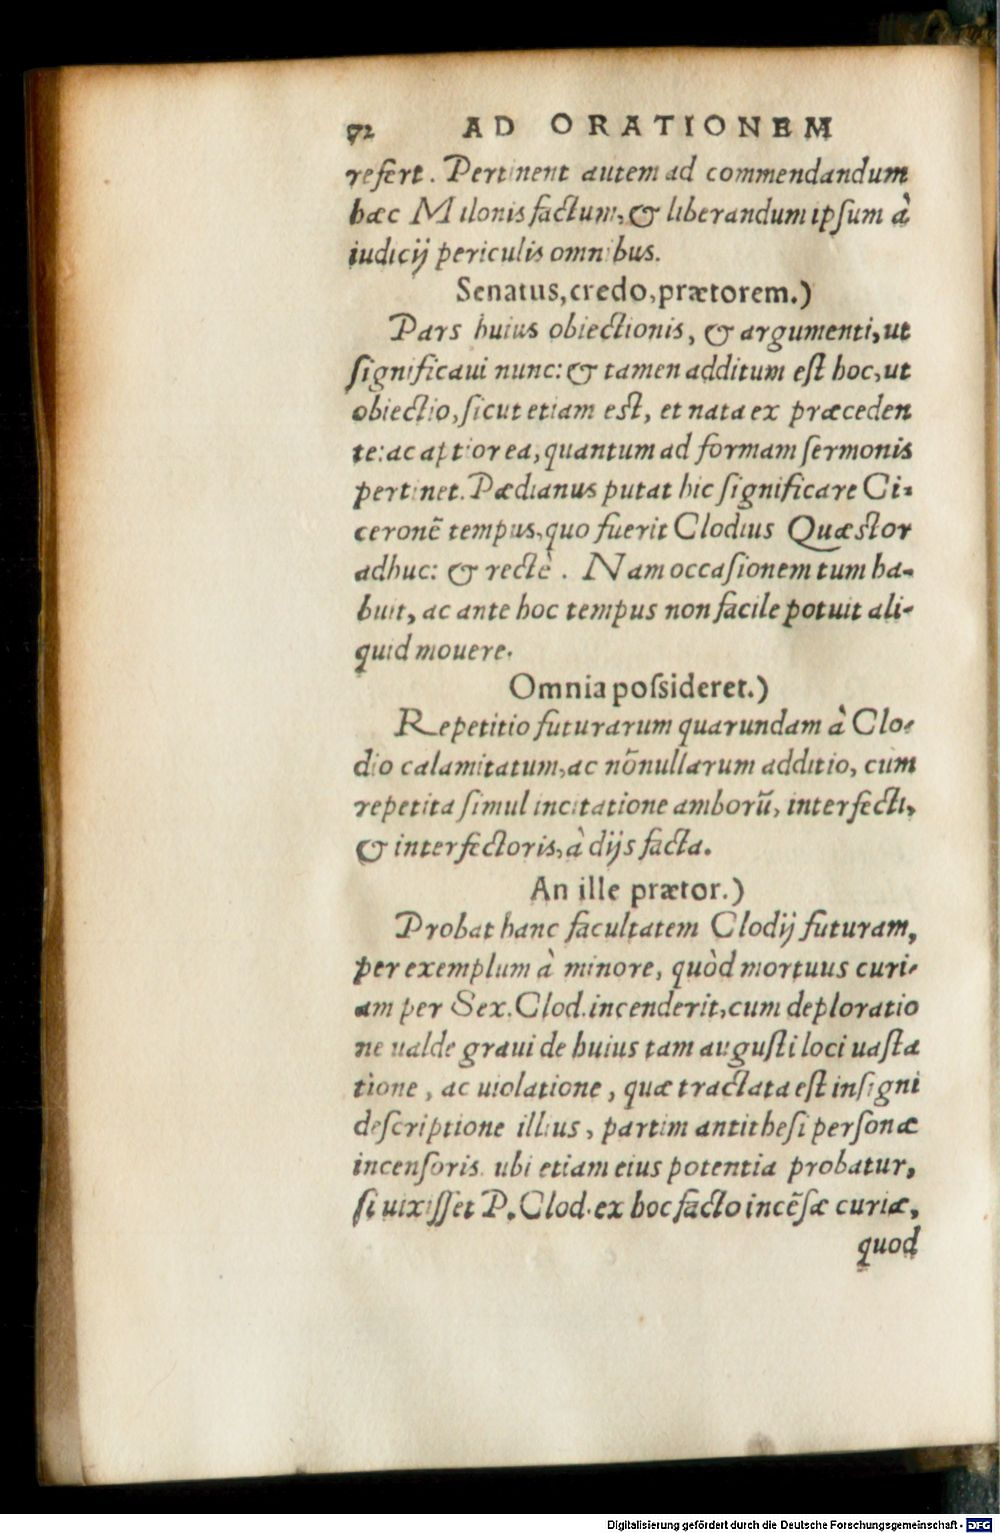 92 AD ORATIONEM
refert. Pertinent autem ad commendandum
hæc Milonis factum, & liberandum ipsum à
iudicij periculis omnibus.
Senatus, credo, prætorem.)
Pars huius obiectionis, & argumenti, ut
significaui nunc: & tamen additum est hoc, ut
obiectio, sicut etiam est, et nata ex præceden
te: ac aptior ea, quantum ad formam sermonis
pertinet. Pædianus putat hic significare Ci-
ceronē tempus, quo fuerit Clodius Quæstor
adhuc: & rectè. Nam occasionem tum ha-
buit, ac ante hoc tempus non facile potuit ali-
quid mouere.
Omnia possideret.)
Repetitio futurarum quarundam à Clo-
dio calamitatum, ac nōnullarum additio, cum
repetita simul incitatione amborū, interfecti,
& interfectoris, à dijs facta.
An ille prætor.)
Probat hanc facultatem Clodij futuram,
per exemplum à minore, quòd mortuus curi-
am per Sex. Clod. incenderit, cum deploratio
ne ualde graui de huius tam augusti loci uasta
tione, ac uiolatione, quæ tractata est insigni
descriptione illius, partim antithesi personæ
incensoris. ubi etiam eius potentia probatur,
si uixisset P. Clod. ex hoc facto incēsæ curiæ,
quod
Digitalisierung gefördert durch die Deutsche Forschungsgemeinschaft - DFG